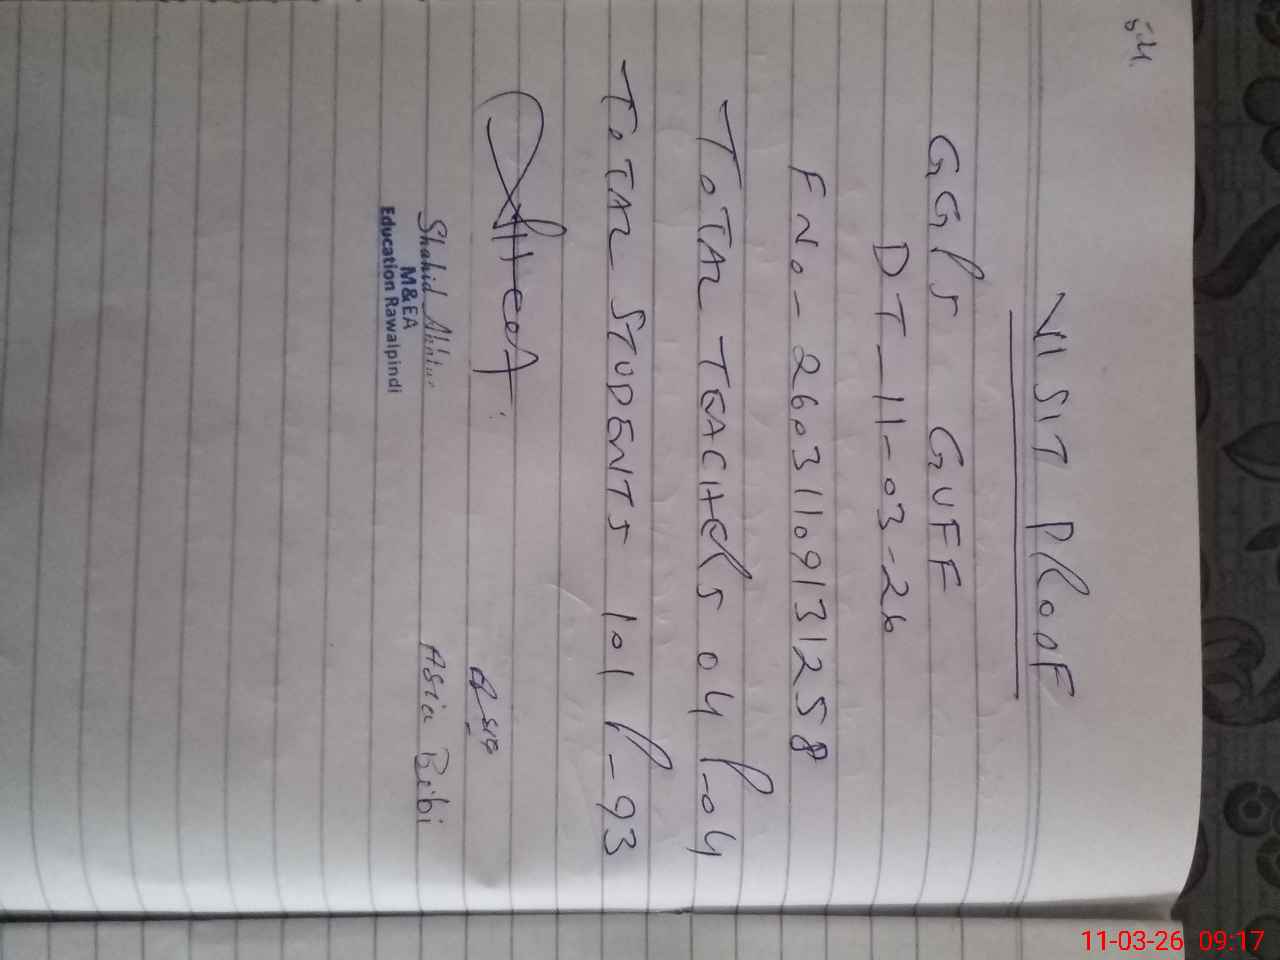 VISIT PROOF
GGPS GUFF
DT_11-03-26
FNo-26031109131258
TOTAL TEACHERS 04 P-04
TOTAL STUDENTS 101 P-93
Asia
Shahid Akhtar
Asia Bibi
M&EA
Education Rawalpindi
11-03-26 09:17